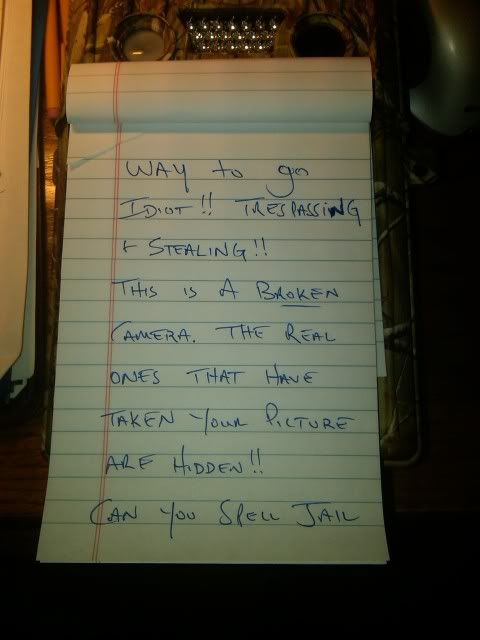 WAY to go
IDIOT!! TRESPASSING
& STEALING!!
THIS IS A BROKEN
CAMERA. THE REAL
ONES THAT HAVE
TAKEN YOUR PICTURE
ARE HIDDEN!!
CAN YOU SPELL JAIL